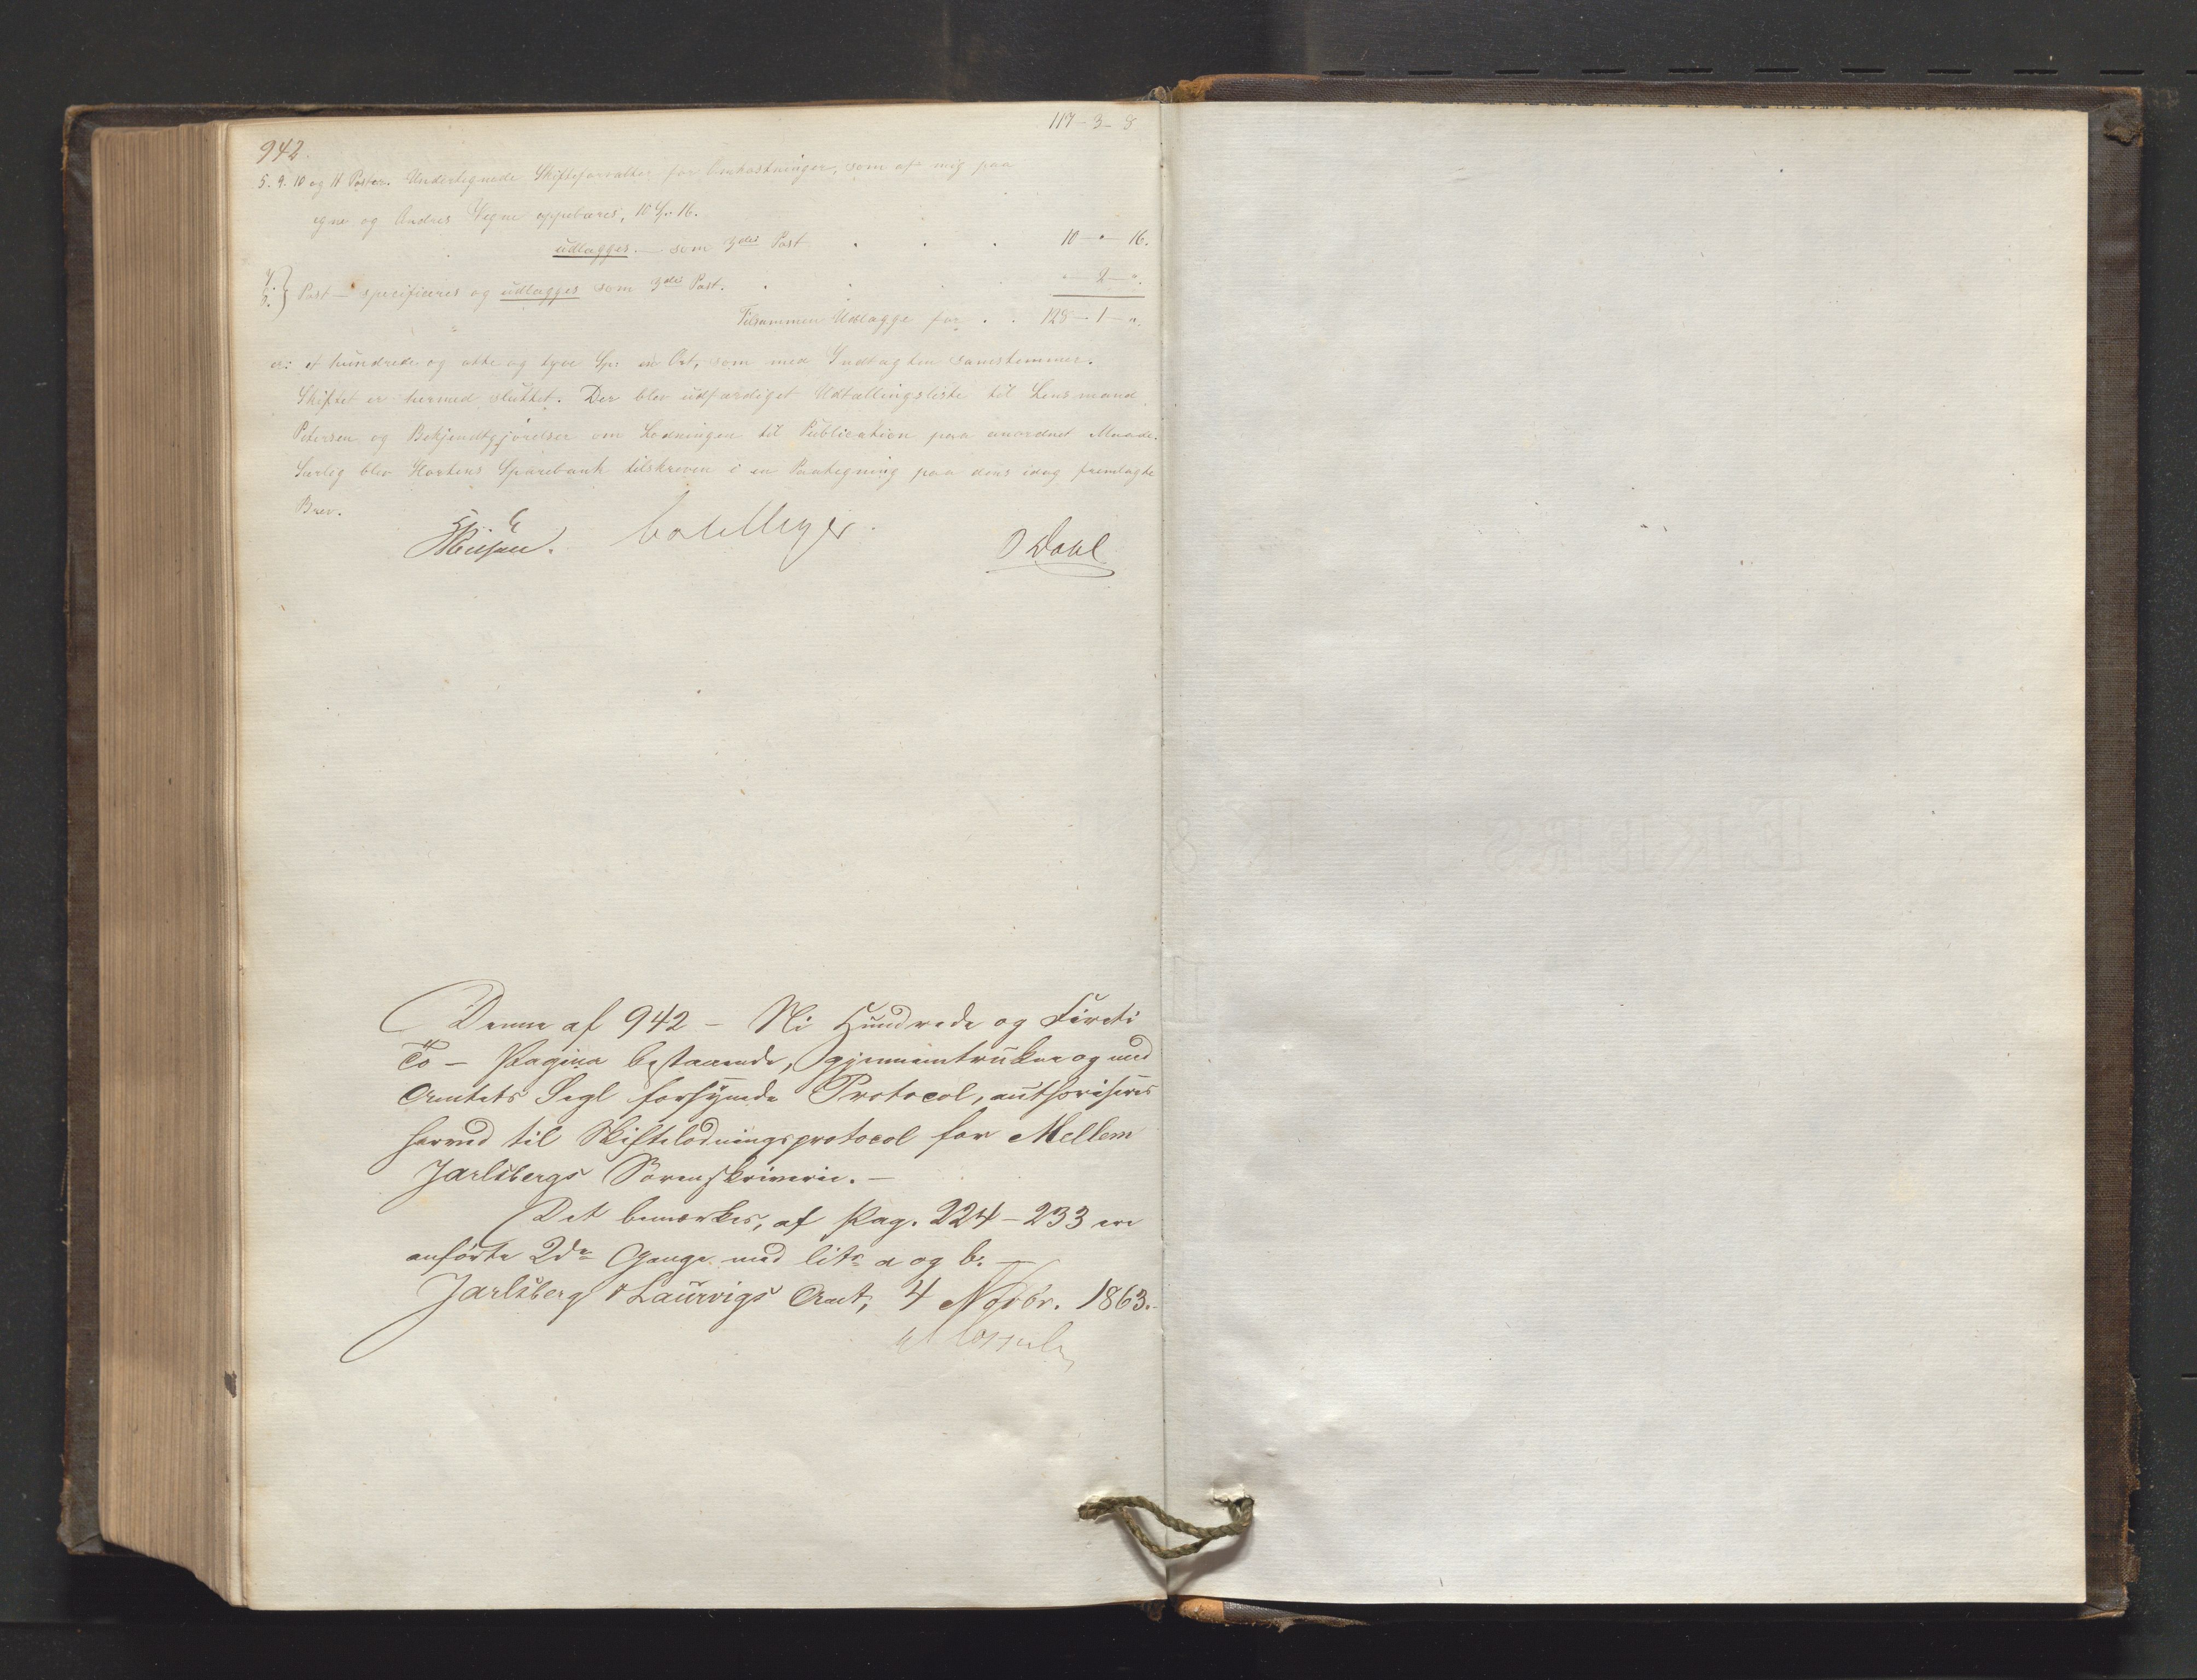 117-3-8
942.
5. 9. 10 og 11 Poster. Undertegnede Skifteforvalter for Omkostninger, som af mig paa
egne og Andres Vegne oppebæres, 10 Sp. 16.
udlægges - som 3die Post . . . 10 - " - 16.
Post - specificeres og udlægges som 3die Post. . . . " - 2 - ".
Tilsammen Udlagge for . . 128 - 1 - ".
er: et hundrede og otte og tyve Sp: en Ort, som med Indtægten samstemmer.
Skiftet er hermed sluttet. Der blev udfærdiget Udtællingsliste til Lensmand
Petersen og Bekjendtgjørelser om Lodningen til Publication paa anordnet Maade.
Særlig blev Hortens Sparebank tilskreven i en Paategning paa dens idag fremlagte
Brev.
O Dahl
Denne af 942 - Ni Hundrede og Fireti
To - Pagina bestaaende, gjennemtrukne og med
Amtets Segl forsynede Protocol, authoriseres
herved til Skiftelodningsprotocol for Mellem
Jarlsbergs Sorenskriverie. -
Det bemærkes, at Pag. 224-233 ere
anførte 2de Gange med litr a og b. -
Jarlsberg & Laurvigs Amt, 4 Novbr. 1863.